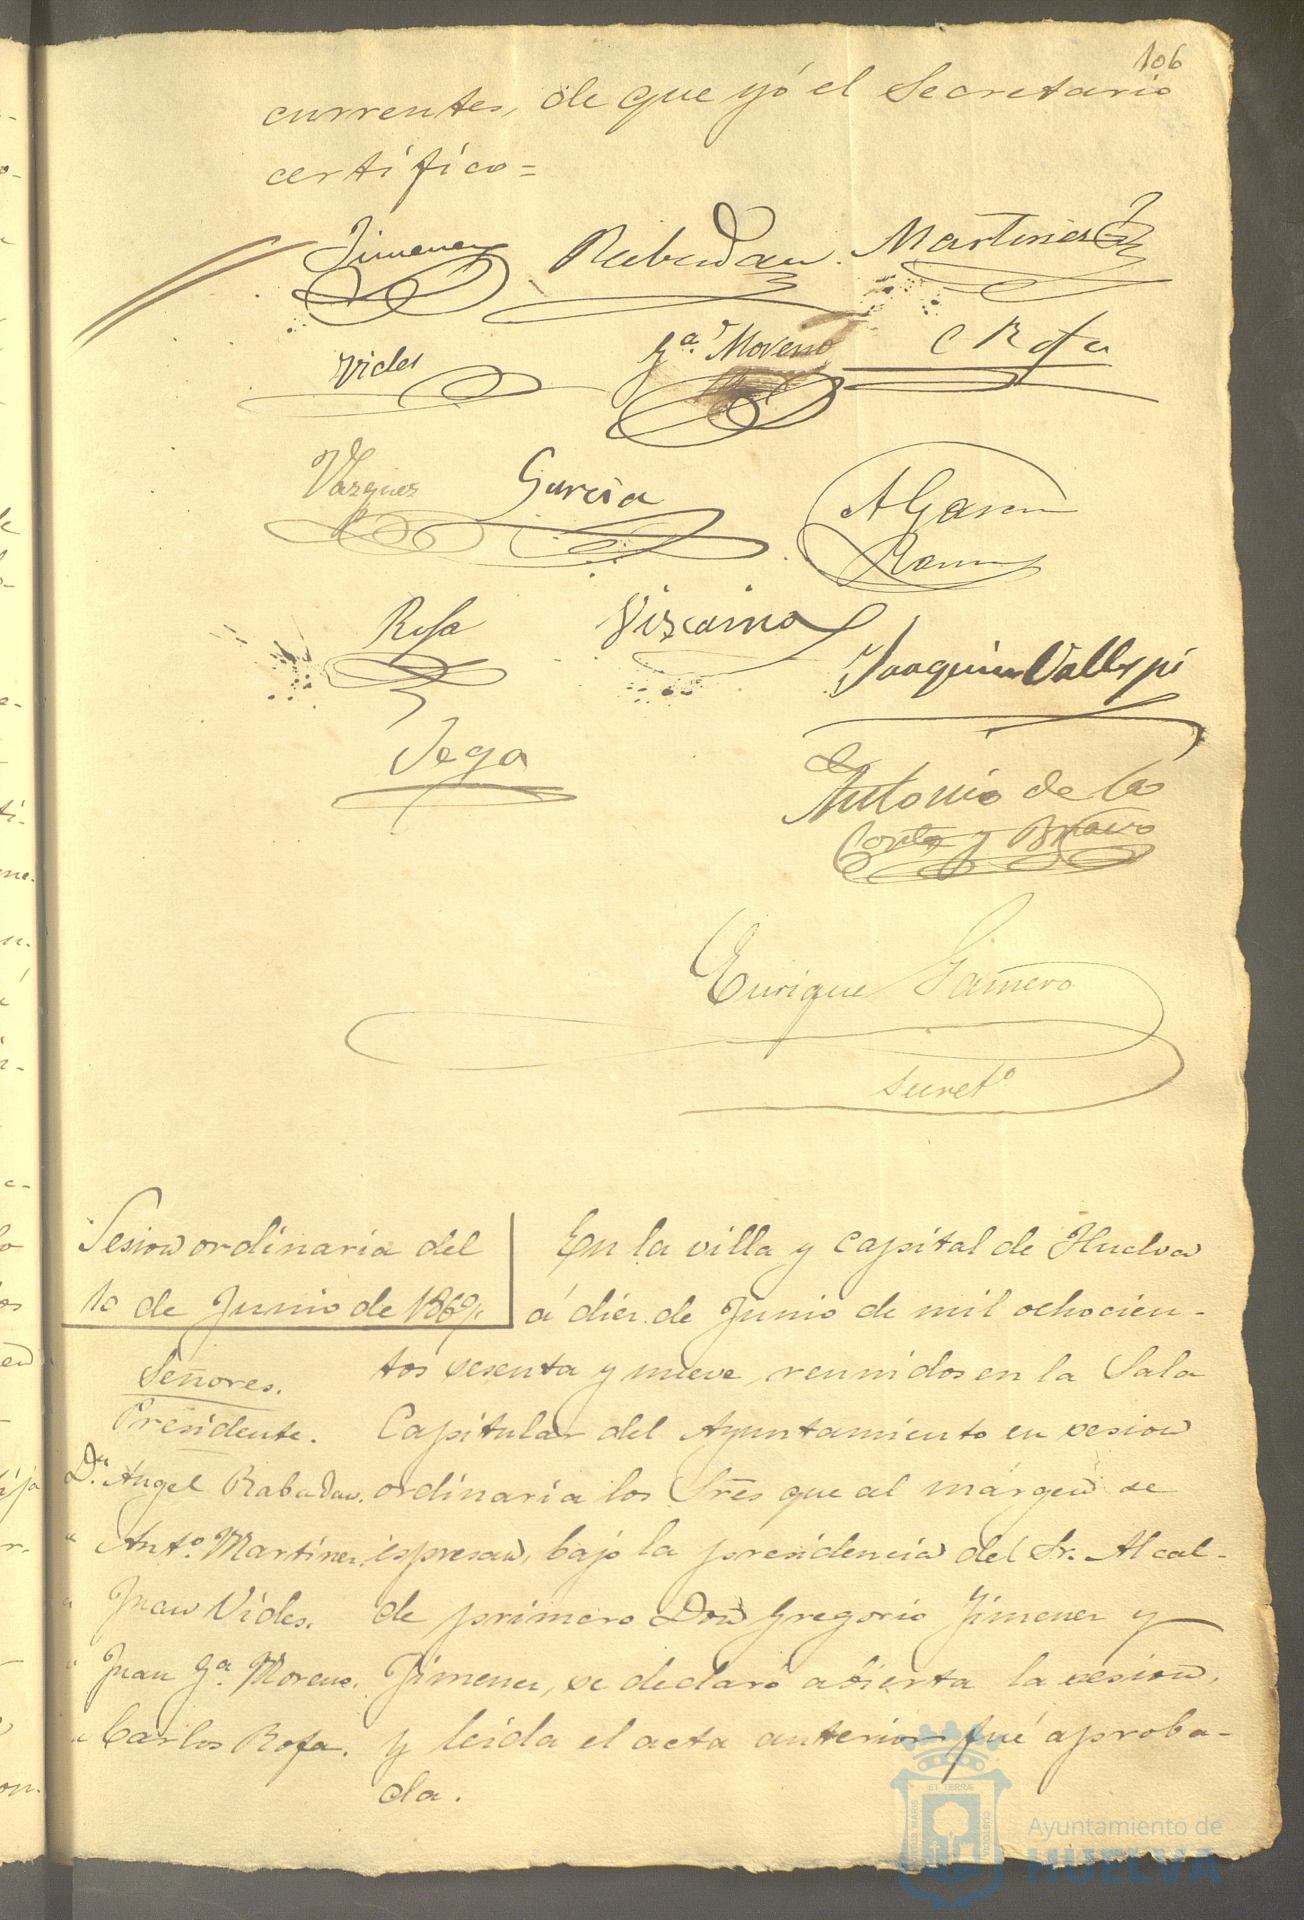 106
currentes, de que yó el Secretario
certifico=
Jimenez Rabadan Martinez
Vides Gª. Moreno C Rofa
Vazquez Garcia A Garcia
Ramos
Rofa Viscaino
Joaquin Vallespi
Vega
Antonio de la
Corte y Bravo
Enrique Gamero
Secretº
Sesion ordinaria del
10 de Junio de 1869
Señores.
Presidente.
Dn. Ángel Rabadan.
" Antº. Martinez.
" Juan Vides.
" Juan Gª. Moreno.
" Carlos Rofa.
En la villa y capital de Huelva
á diez de Junio de mil ochocien-
tos sesenta y nueve, reunidos en la Sala
Capitular del Ayuntamiento en sesion
ordinaria los Sres que al márgen se
espresan, bajo la presidencia del Sr. Alcal-
de primero Don Gregorio Jimenez y
Jimenez, se declaró abierta la sesion,
y leida el acta anterior fué aproba-
da.
ET TERRÆ
PORTUS MARIS
CUSTODIA
Ayuntamiento de
HUELVA